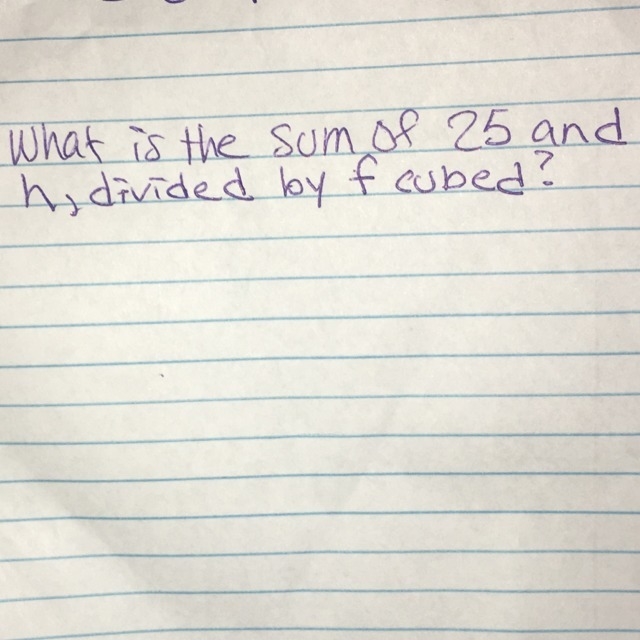 What is the sum of 25 and
h, divided by f cubed?